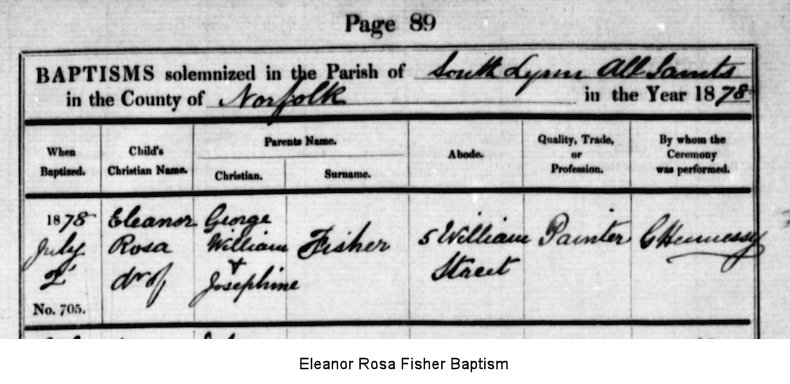 Page 89
BAPTISMS solemnized in the Parish of South Lynn All Saints
in the County of Norfolk in the Year 1878
When Baptized.
Child's Christian Name.
Parents Name.
Christian.
Surname.
Abode.
Quality, Trade, or Profession.
By whom the Ceremony was performed.
1878
July
2
No. 705.
Eleanor
Rosa
dr of
George
William
+
Josephine
Fisher
5 William
Street
Painter
C Hennessy
Eleanor Rosa Fisher Baptism